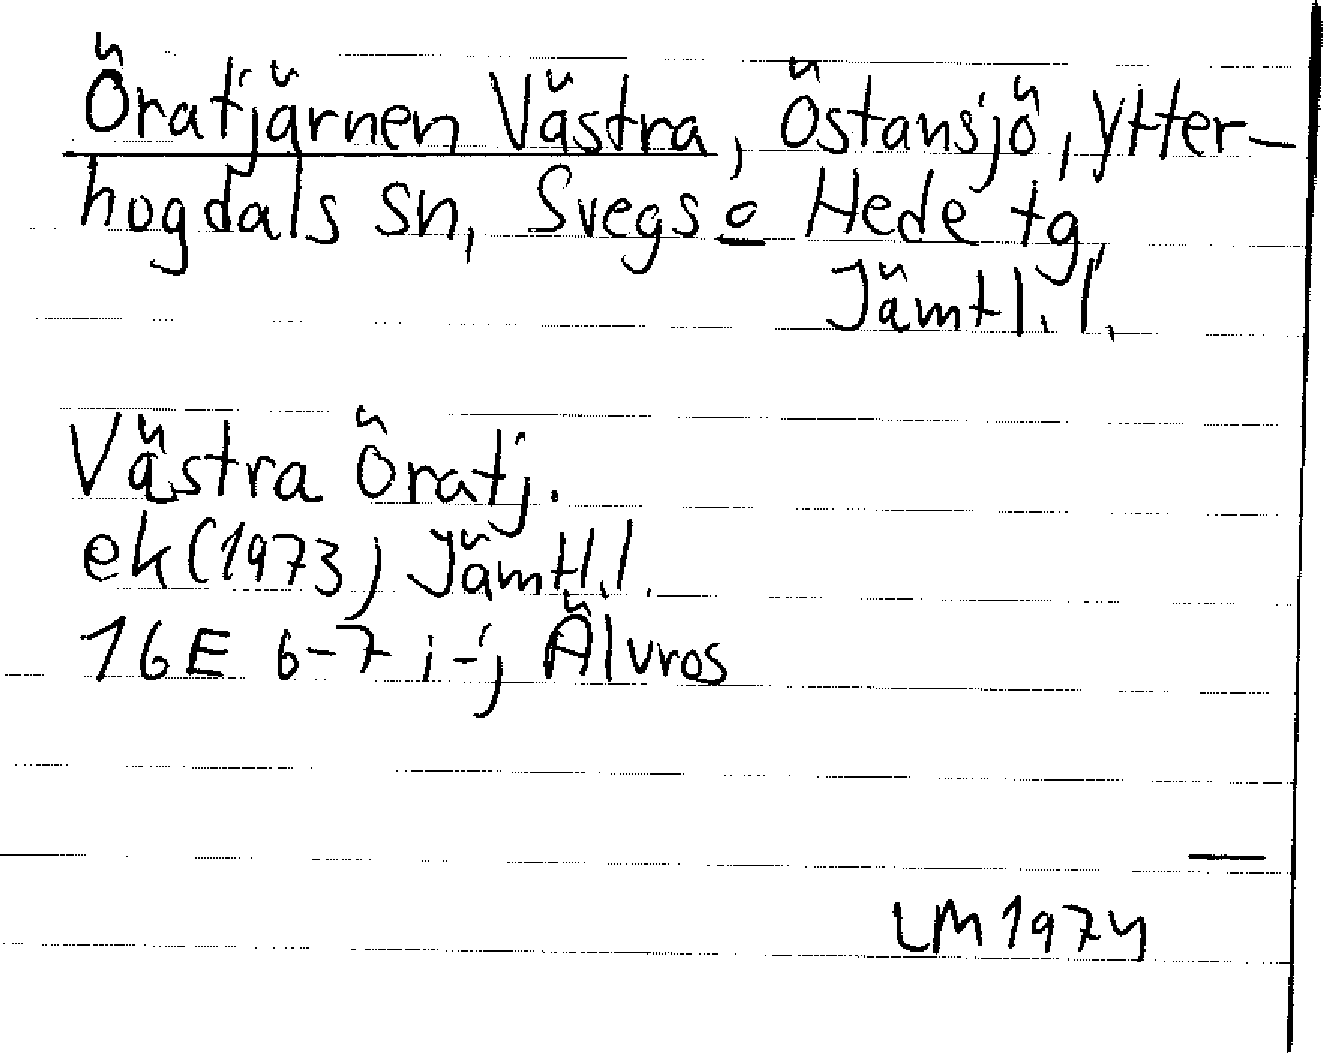 Öratjärnen Västra, Östansjö, Ytter-
hogdals sn, Svegs o Hede tg,
Jämtl. l.
Västra Öratj.
ek (1973) Jämtl. l.
16E 6-7 i-j Älvros
LM 1974